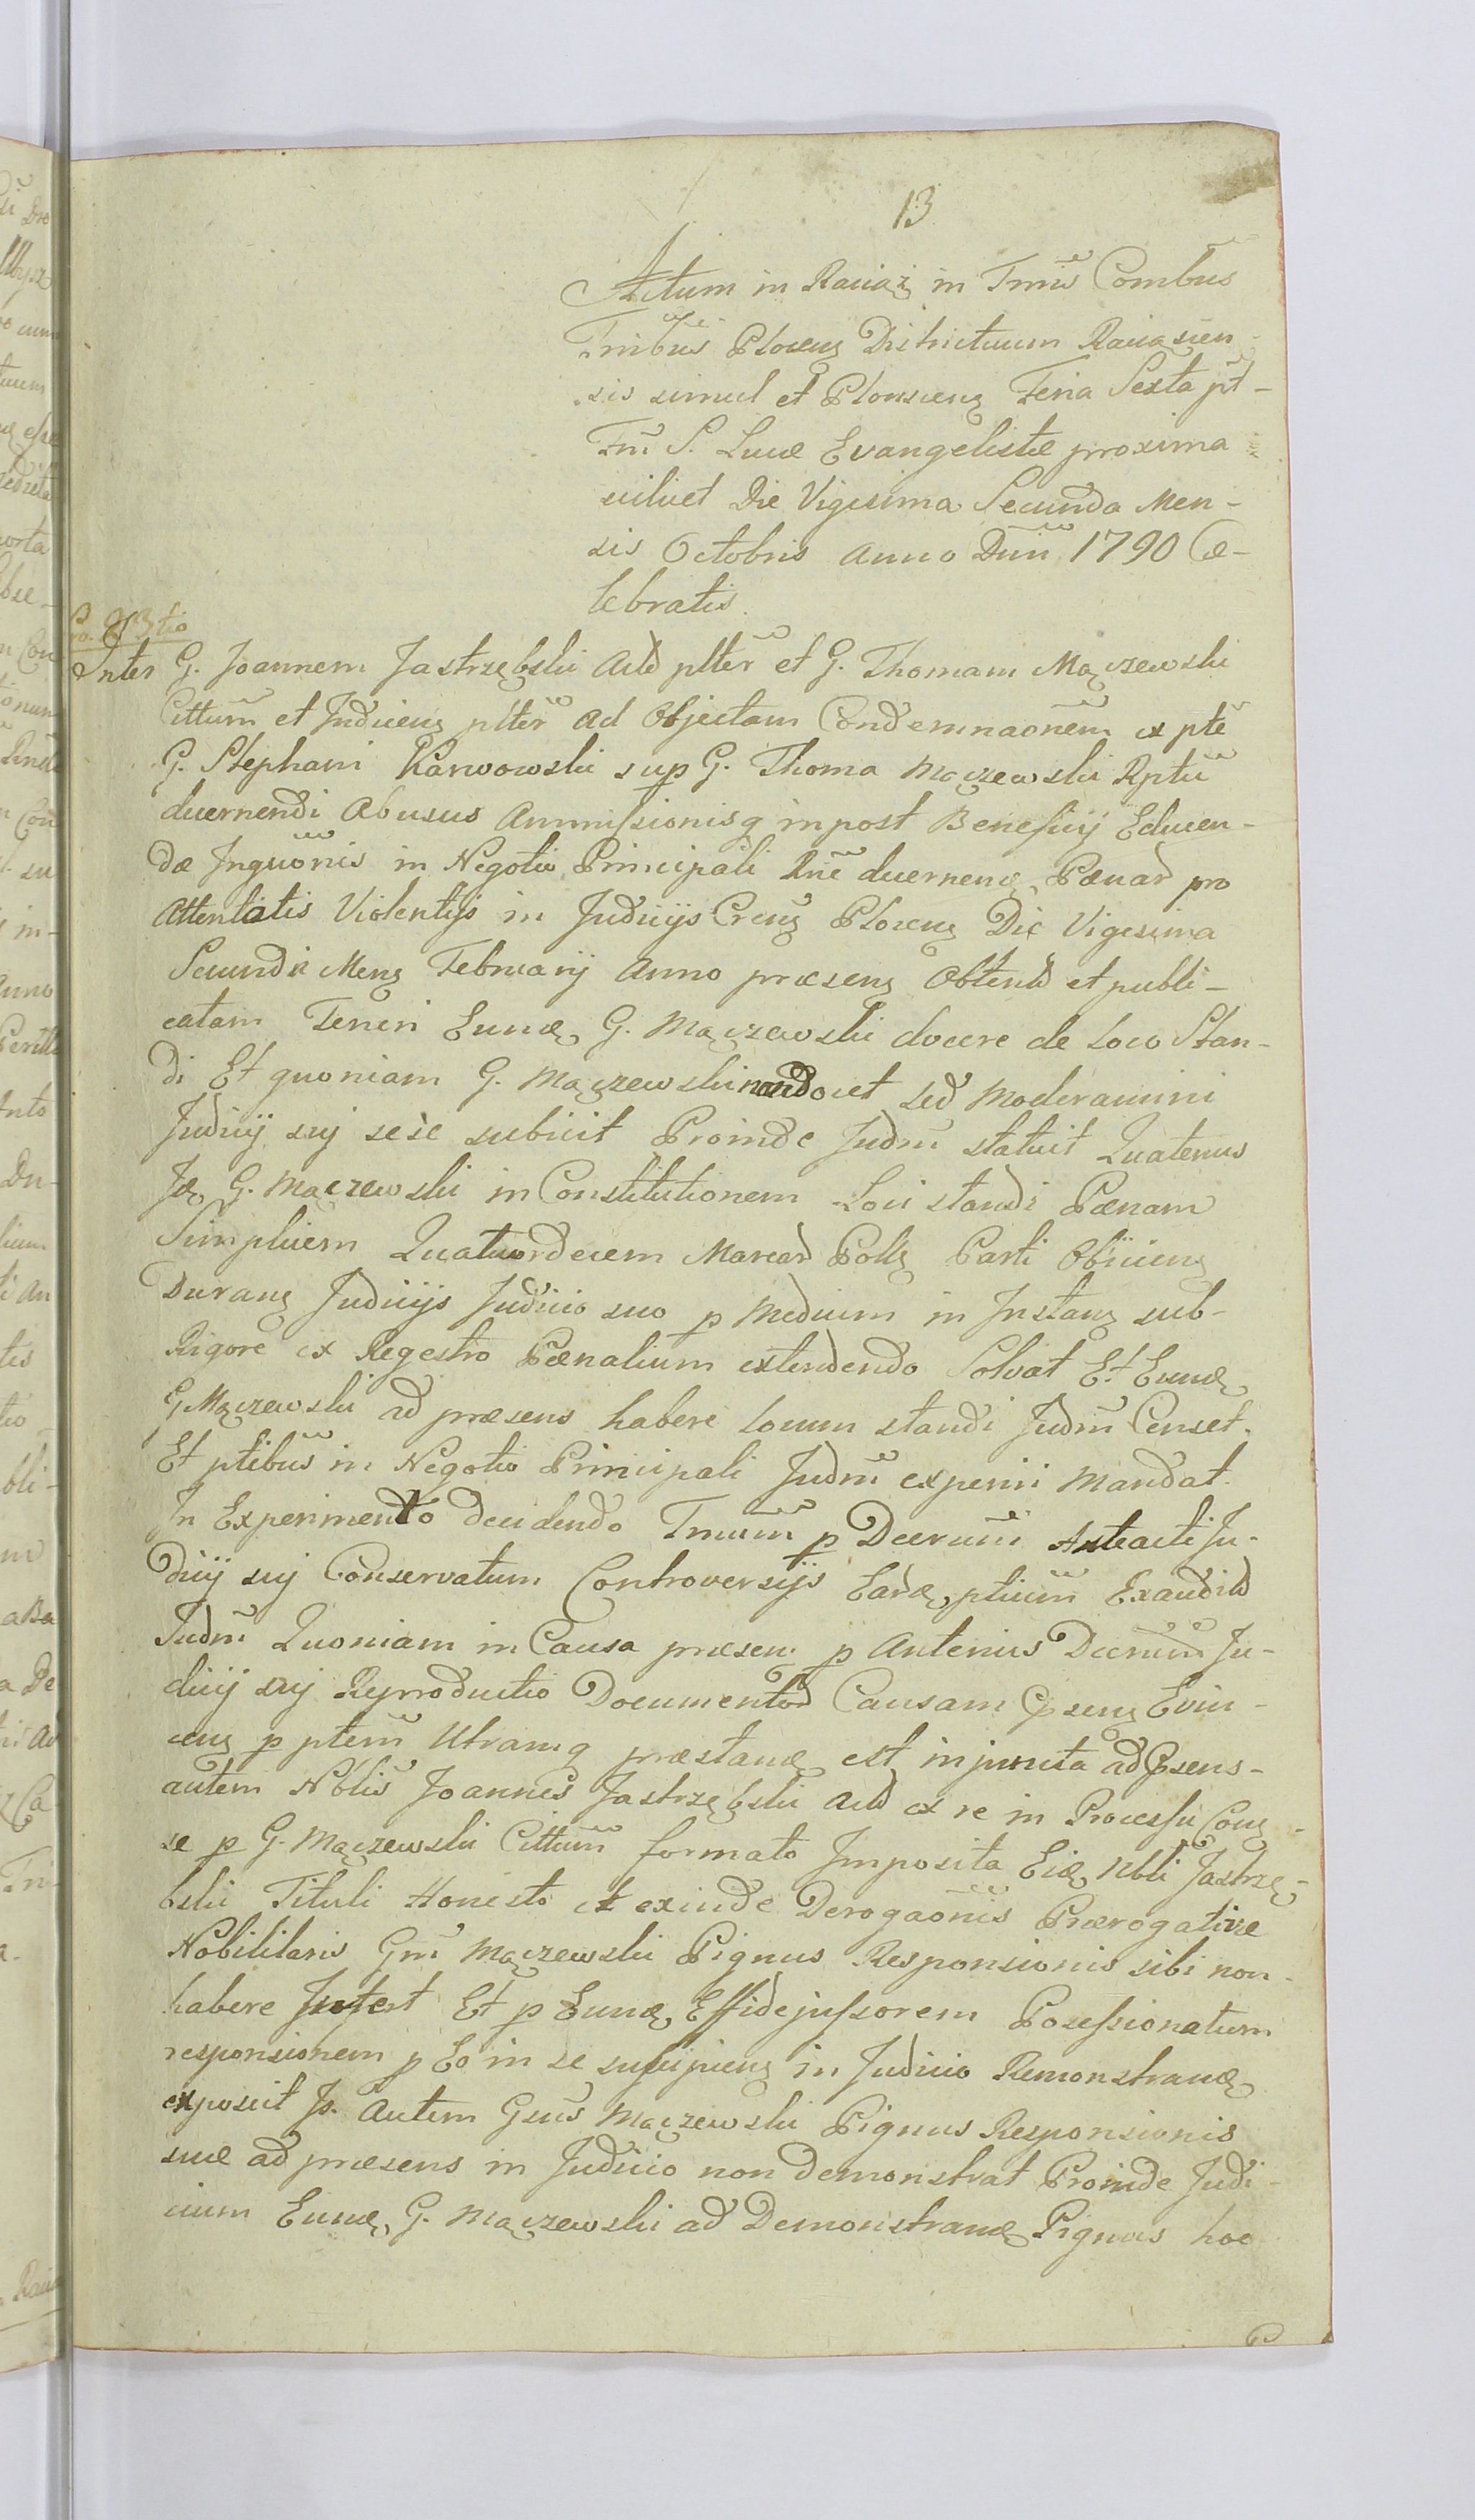 13
Actum in Raciąż in Tmis Combus
Tmibus Plocens Districtuum Raciążien-
sis simul et Plonscens Feria Sexta pt-
Fm S. Lucæ Evangelistæ proxima
scilicet Die Vigesima Secunda Men-
sis Octobris Anno Dni 1790 Ce-
lebratis.
Inter G. Joannem Jastrzębski Actd plter et G. Thomam Mączewski
Cittum et Judiciens plter ad Objectam Condemnaonem ex pte
G. Stephani Karwowski sup G. Thoma Mączewski Rptu
decernendi Abusus Ammissionisq inpost Beneficij Educen-
dæ Inquonis in Negotio Principali Rne decernenæ Pænar pro
Attentatis Violentijs in Judicijs Crens Plocens Die Vigesima
Secunda Mens Februarij Anno præsens Obtent et publi-
catam Teneri Eunæ G. Mączewski docere de Loco Stan-
di Et quoniam G. Mączewski non docet sed Moderamini
Judicij sui sese subicit Proinde Judm statuit Quatenus
Jæ G. Mączewski in Constitutionem Loci standi Pænam
Simplicem Quatuordecem Marcar Polls Parti Obijciens
Durans Judicijs Judicio suo p Medium in Instans sub-
Rigore ex Regestro Pænalium extendendo Solvat Et Eunæ
G Mączewski ad præsens habere locum standi Judm Censet.
Et ptibus in Negotio Principali Judm experiri Mandat.
In Experimento decidendo Tmum p Decrum Anteacti Ju-
dicij sui Conservatum Controversijs Earæ ptium Exaudit
Judm Quoniam in Causa præsen p Anterius Decrum Ju-
dicij sui Reproductio Documentor Causam Psens Evin-
cens p ptem Utramq præstanæ est injuncta ad Psens-
autem Nblis Joannes Jastrzębski Actd ex re in Processu Cons-
se p G. Mączewski Cittum formato Imposita Eiæ Nbli Jastrzę-
bski Tituli Honesto et exinde Derogaonis Prærogativæ
Nobilitaris Gm Mączewski Pignus Responsionis sibi non-
habere Et p Eunæ Effidejussorem Posessionatum
responsionem p Eo in se suscipiens in Judicio Remonstranæ
exposcit Js. Autem Gsus Mączewski Pignus Responsionis
suæ ad præsens in Judicio non demonstrat Proinde Judi-
cium Eunæ G. Mączewski ad Demonstranæ Pignus hoc